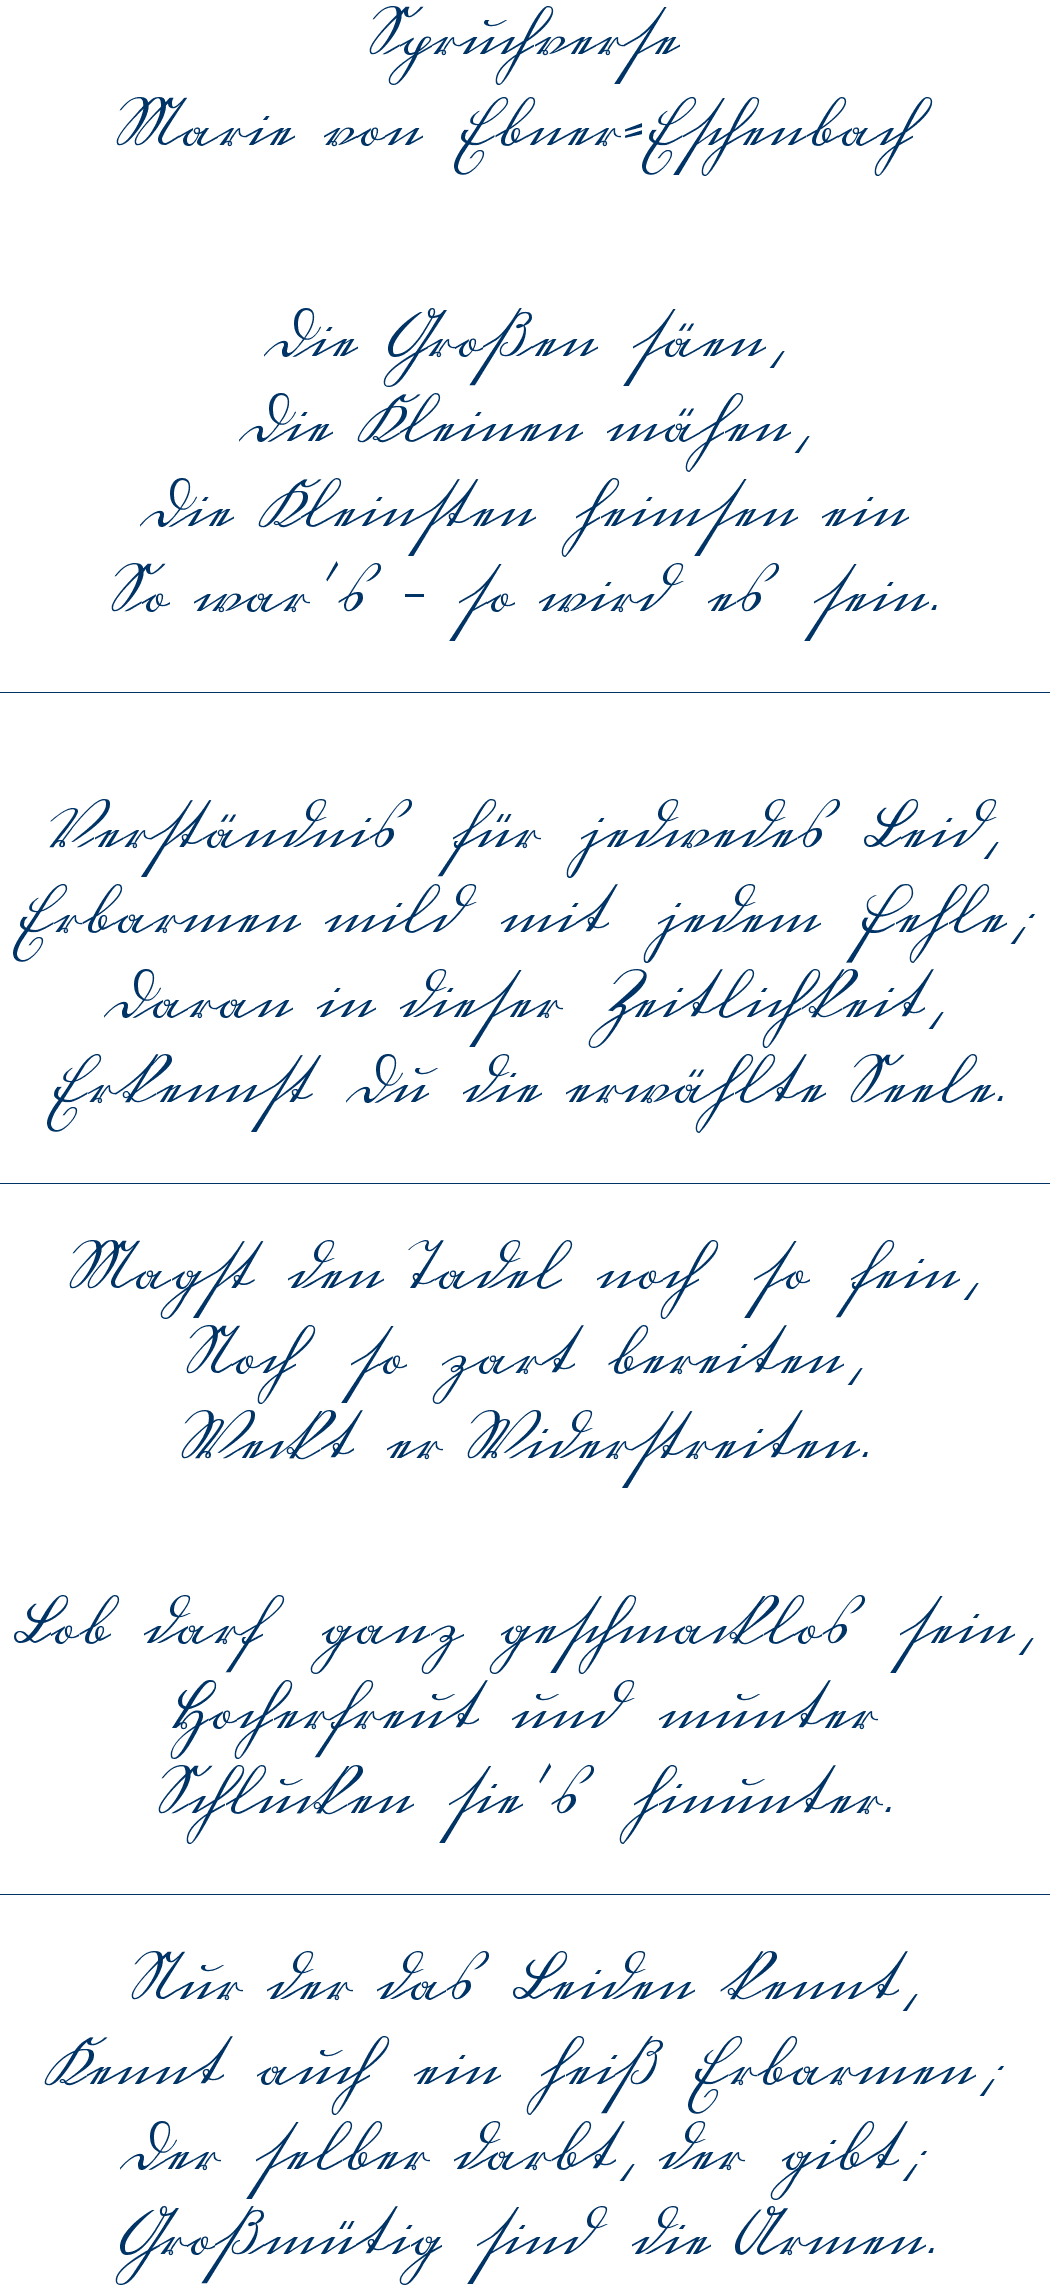 Spruchverse
Marie von Ebner=Eschenbach
Die Großen säen,
Die Kleinen mähen,
Die Kleinsten heimsen ein
So war's - so wird es sein.
Verständnis für jedwedes Leid,
Erbarmen mild mit jedem Fehle;
Daran in dieser Zeitlichkeit,
Erkennst Du die erwählte Seele.
Magst den Tadel noch so fein,
Noch so zart bereiten,
Weckt er Widerstreiten.
Lob darf ganz geschmacklos sein,
Hocherfreut und munter
Schlucken sie's hinunter.
Nur der das Leiden kennt,
Kennt auch ein heiß Erbarmen;
Der selber darbt, der gibt;
Großmütig sind die Armen.